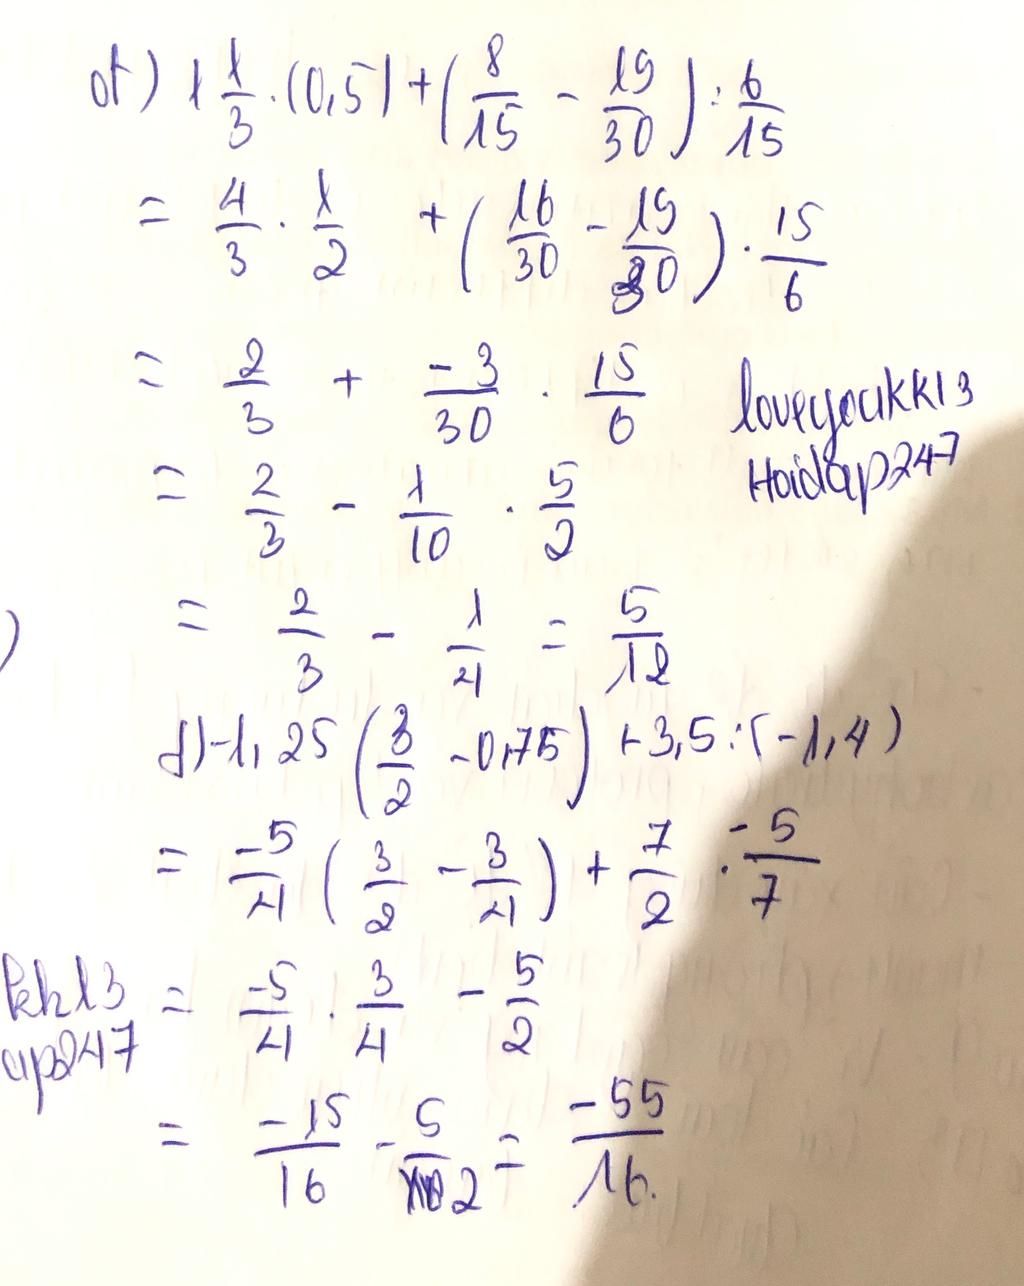 d) 1 1/3 . (0,5) + (8/15 - 19/30) : 6/15
= 4/3 . 1/2 + (16/30 - 19/30) . 15/6
= 2/3 + -3/30 . 15/6
loveyoukk13
Hoidap247
= 2/3 - 1/10 . 5/2
)
= 2/3 - 1/4 = 5/12
f) -1,25 (3/2 - 0,75) + 3,5 : (-1,4)
= -5/4 (3/2 - 3/4) + 7/2 . -5/7
kk13
ap247
= -5/4 . 3/4 - 5/2
= -15/16 - 5/2 = -55/16.